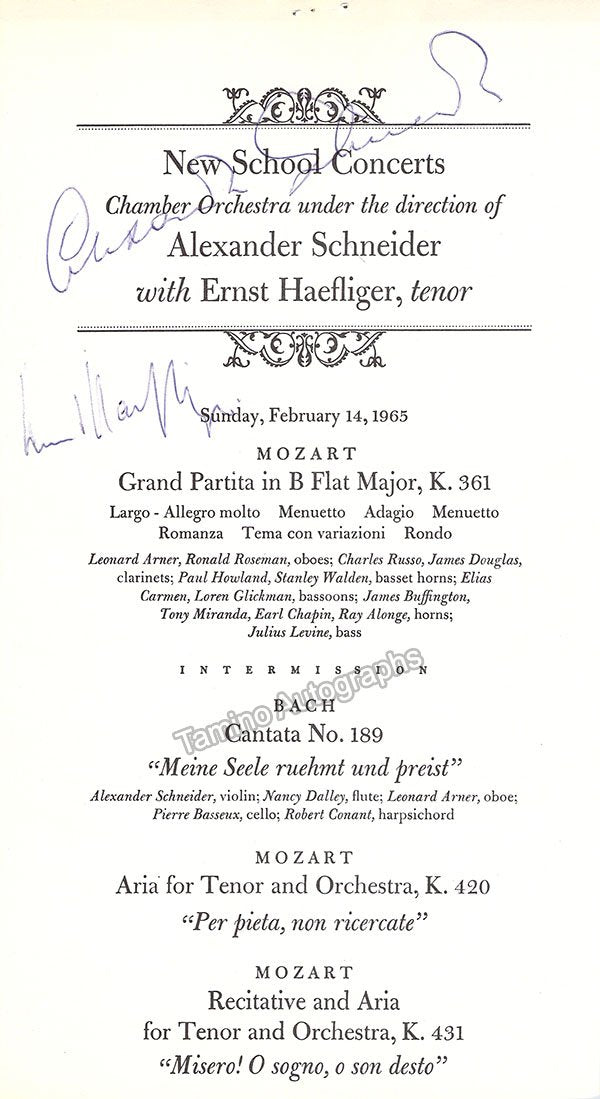 New School Concerts
Chamber Orchestra under the direction of
Alexander Schneider
with Ernst Haefliger, tenor
Sunday, February 14, 1965
MOZART
Grand Partita in B Flat Major, K. 361
Largo - Allegro molto Menuetto Adagio Menuetto
Romanza Tema con variazioni Rondo
Leonard Arner, Ronald Roseman, oboes; Charles Russo, James Douglas,
clarinets; Paul Howland, Stanley Walden, basset horns; Elias
Carmen, Loren Glickman, bassoons; James Buffington,
Tony Miranda, Earl Chapin, Ray Alonge, horns;
Julius Levine, bass
INTERMISSION
Tamino Autographs
BACH
Cantata No. 189
“Meine Seele ruehmt und preist”
Alexander Schneider, violin; Nancy Dalley, flute; Leonard Arner, oboe;
Pierre Basseux, cello; Robert Conant, harpsichord
MOZART
Aria for Tenor and Orchestra, K. 420
“Per pieta, non ricercate”
MOZART
Recitative and Aria
for Tenor and Orchestra, K. 431
“Misero! O sogno, o son desto”